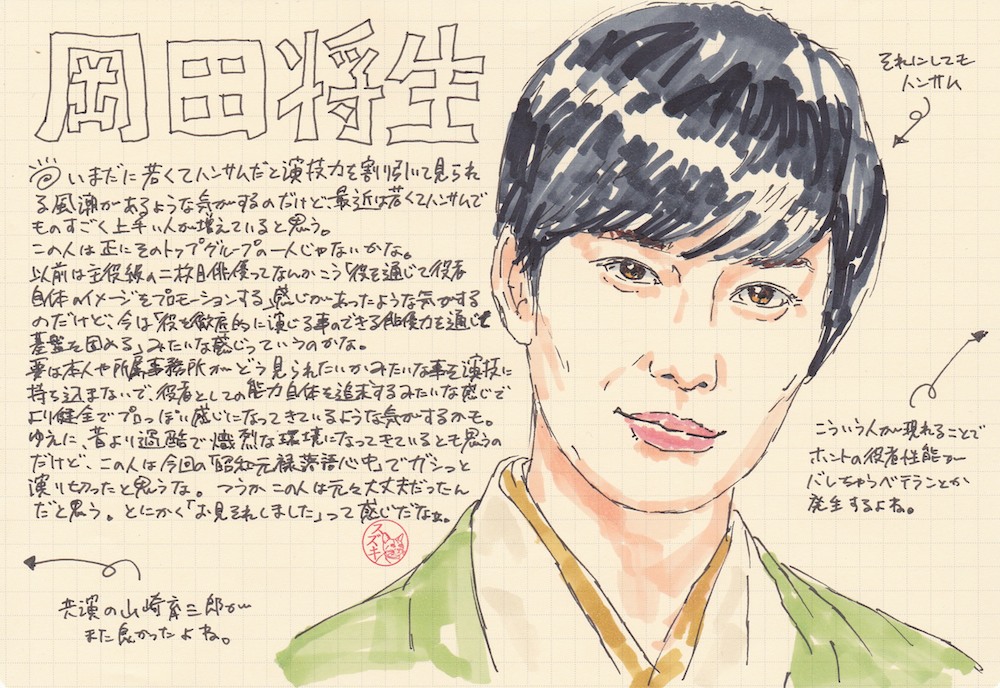 岡田将生
いまだに若くてハンサムだと演技力を割り引いて見られ
る風潮があるような気がするのだけど最近は若くてハンサムで
ものすごく上手い人が増えていると思う。
この人は正にそのトップグループの一人じゃないかな。
以前は主役級の二枚目俳優ってなんかこう「役を通じて役者
自体のイメージをプロモーションする」感じがあったような気がする
のだけど、今は「役を徹底的に演じる事のできる俳優力を通じて
基盤を固める」みたいな感じっていうのかな。
要は本人や所属事務所がどう見られたいかみたいな事を演技に
持ち込まないで、役者としての能力自体を追求するみたいな感じで
より健全でプロっぽい感じになってきているような気がするかも。
ゆえに、昔より過酷で熾烈な環境になってきているとも思うの
だけど、この人は今回の「昭和元禄落語心中」でガシっと
演り切ったと思うな。つうかこの人は元々大丈夫だったん
だと思う。とにかく「お見それしました」って感じだなぁ。
スズキ
それにしても
ハンサム
こういう人が現れることで
ホントの役者性能が
バレちゃうベテランとか
発生するよね。
共演の山崎育三郎が
また良かったよね。